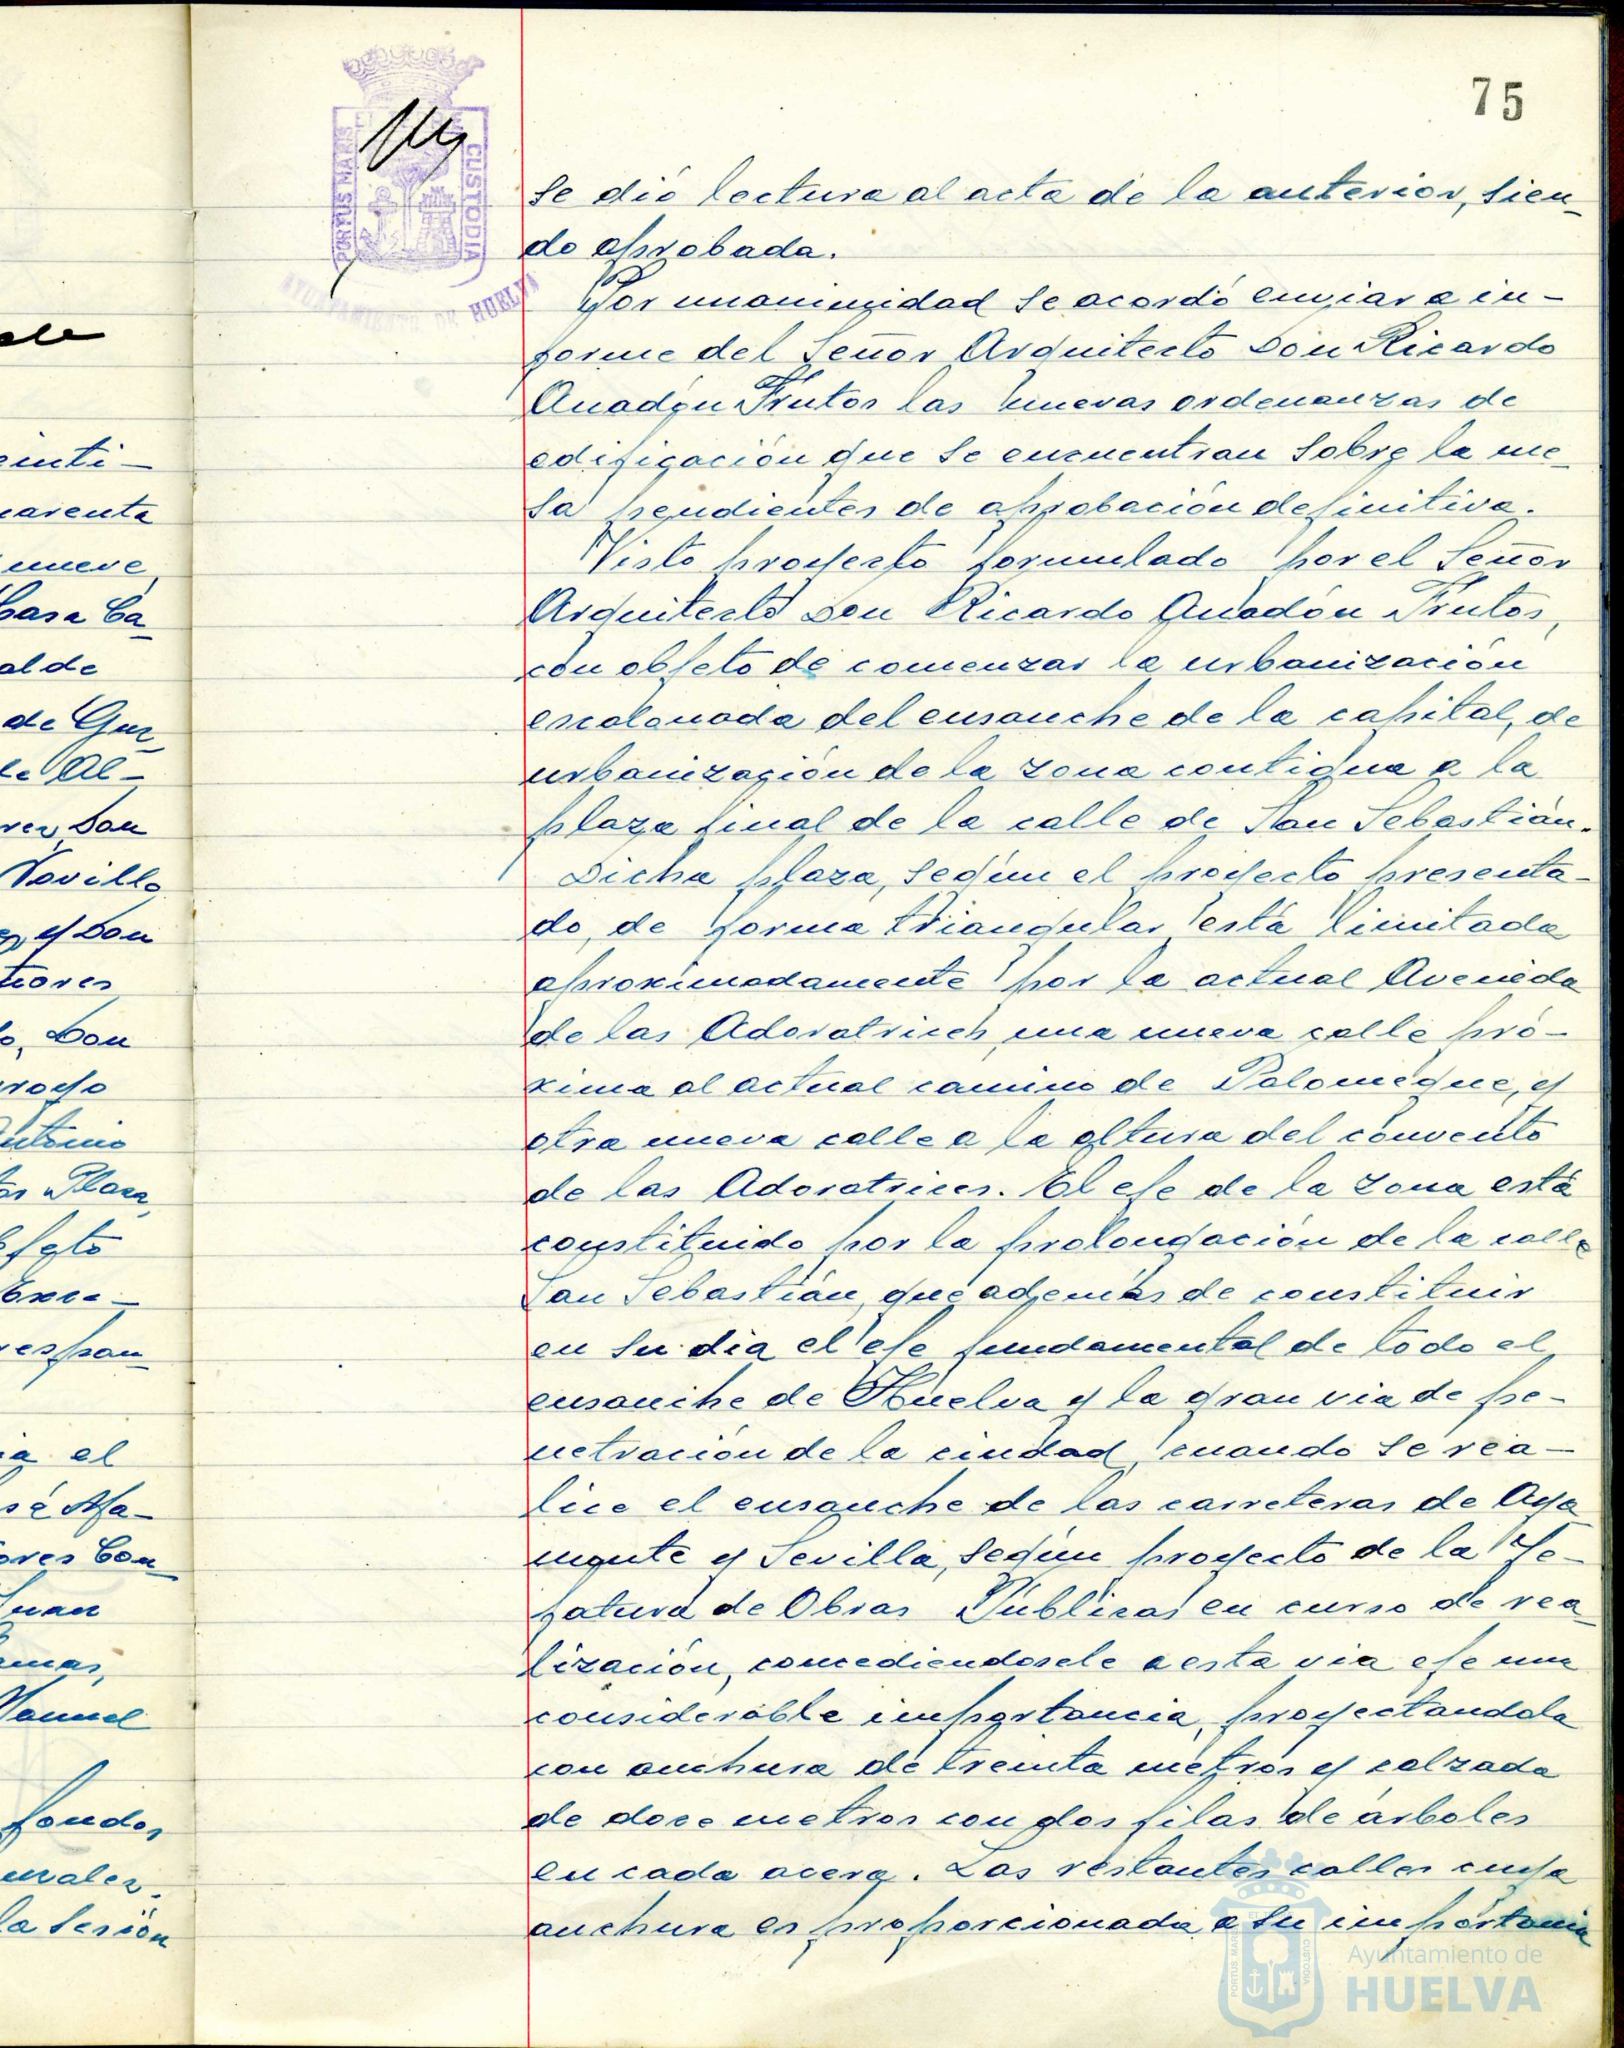 75
PORTUS MARIS
CUSTODIA
AYUNTAMIENTO DE HUELVA
se dió lectura al acta de la anterior, sien-
do aprobada.
Por unanimidad se acordó enviar a in-
forme del Señor Arquitecto Don Ricardo
Anadón Frutos las nuevas ordenanzas de
edificación que se encuentran sobre la me-
sa pendientes de aprobación definitiva.
Visto proyecto formulado por el Señor
Arquitecto Don Ricardo Anadón Frutos,
con objeto de comenzar la urbanización
escalonada del ensanche de la capital, de
urbanización de la zona contigua a la
plaza final de la calle de San Sebastián.
Dicha plaza, según el proyecto presenta-
do, de forma triangular está limitada
aproximadamente por la actual Avenida
de las Adoratrices, una nueva calle pró-
xima al actual camino de Palomeque, y
otra nueva calle a la altura del convento
de las Adoratrices. El eje de la zona está
constituido por la prolongación de la calle
San Sebastián, que además de constituir
en su dia el eje fundamental de todo el
ensanche de Huelva y la gran via de pe-
netración de la ciudad, cuando se rea-
lice el ensanche de las carreteras de Aya
monte y Sevilla, según proyecto de la Je-
fatura de Obras Públicas en curso de rea-
lización, concediendosele a esta via eje una
considerable importancia, proyectandola
con anchura de treinta metros y calzada
de doce metros con dos filas de árboles
en cada acera. Las restantes calles cuya
anchura es proporcionada a su importancia
einti-
uarenta
nueve
Casa Ca-
alde
de Guz-
le Al-
rez, Don
Novillo
y Don
tiores
o, Don
rroyo
Antonio
Plaza,
bjeto
Exce-
respon-
ia el
sé Ma-
ores Con-
Juan
Manuel
fondos
nzalez.
la sesión
PORTUS MARIS
CUSTODIA
Ayuntamiento de
HUELVA